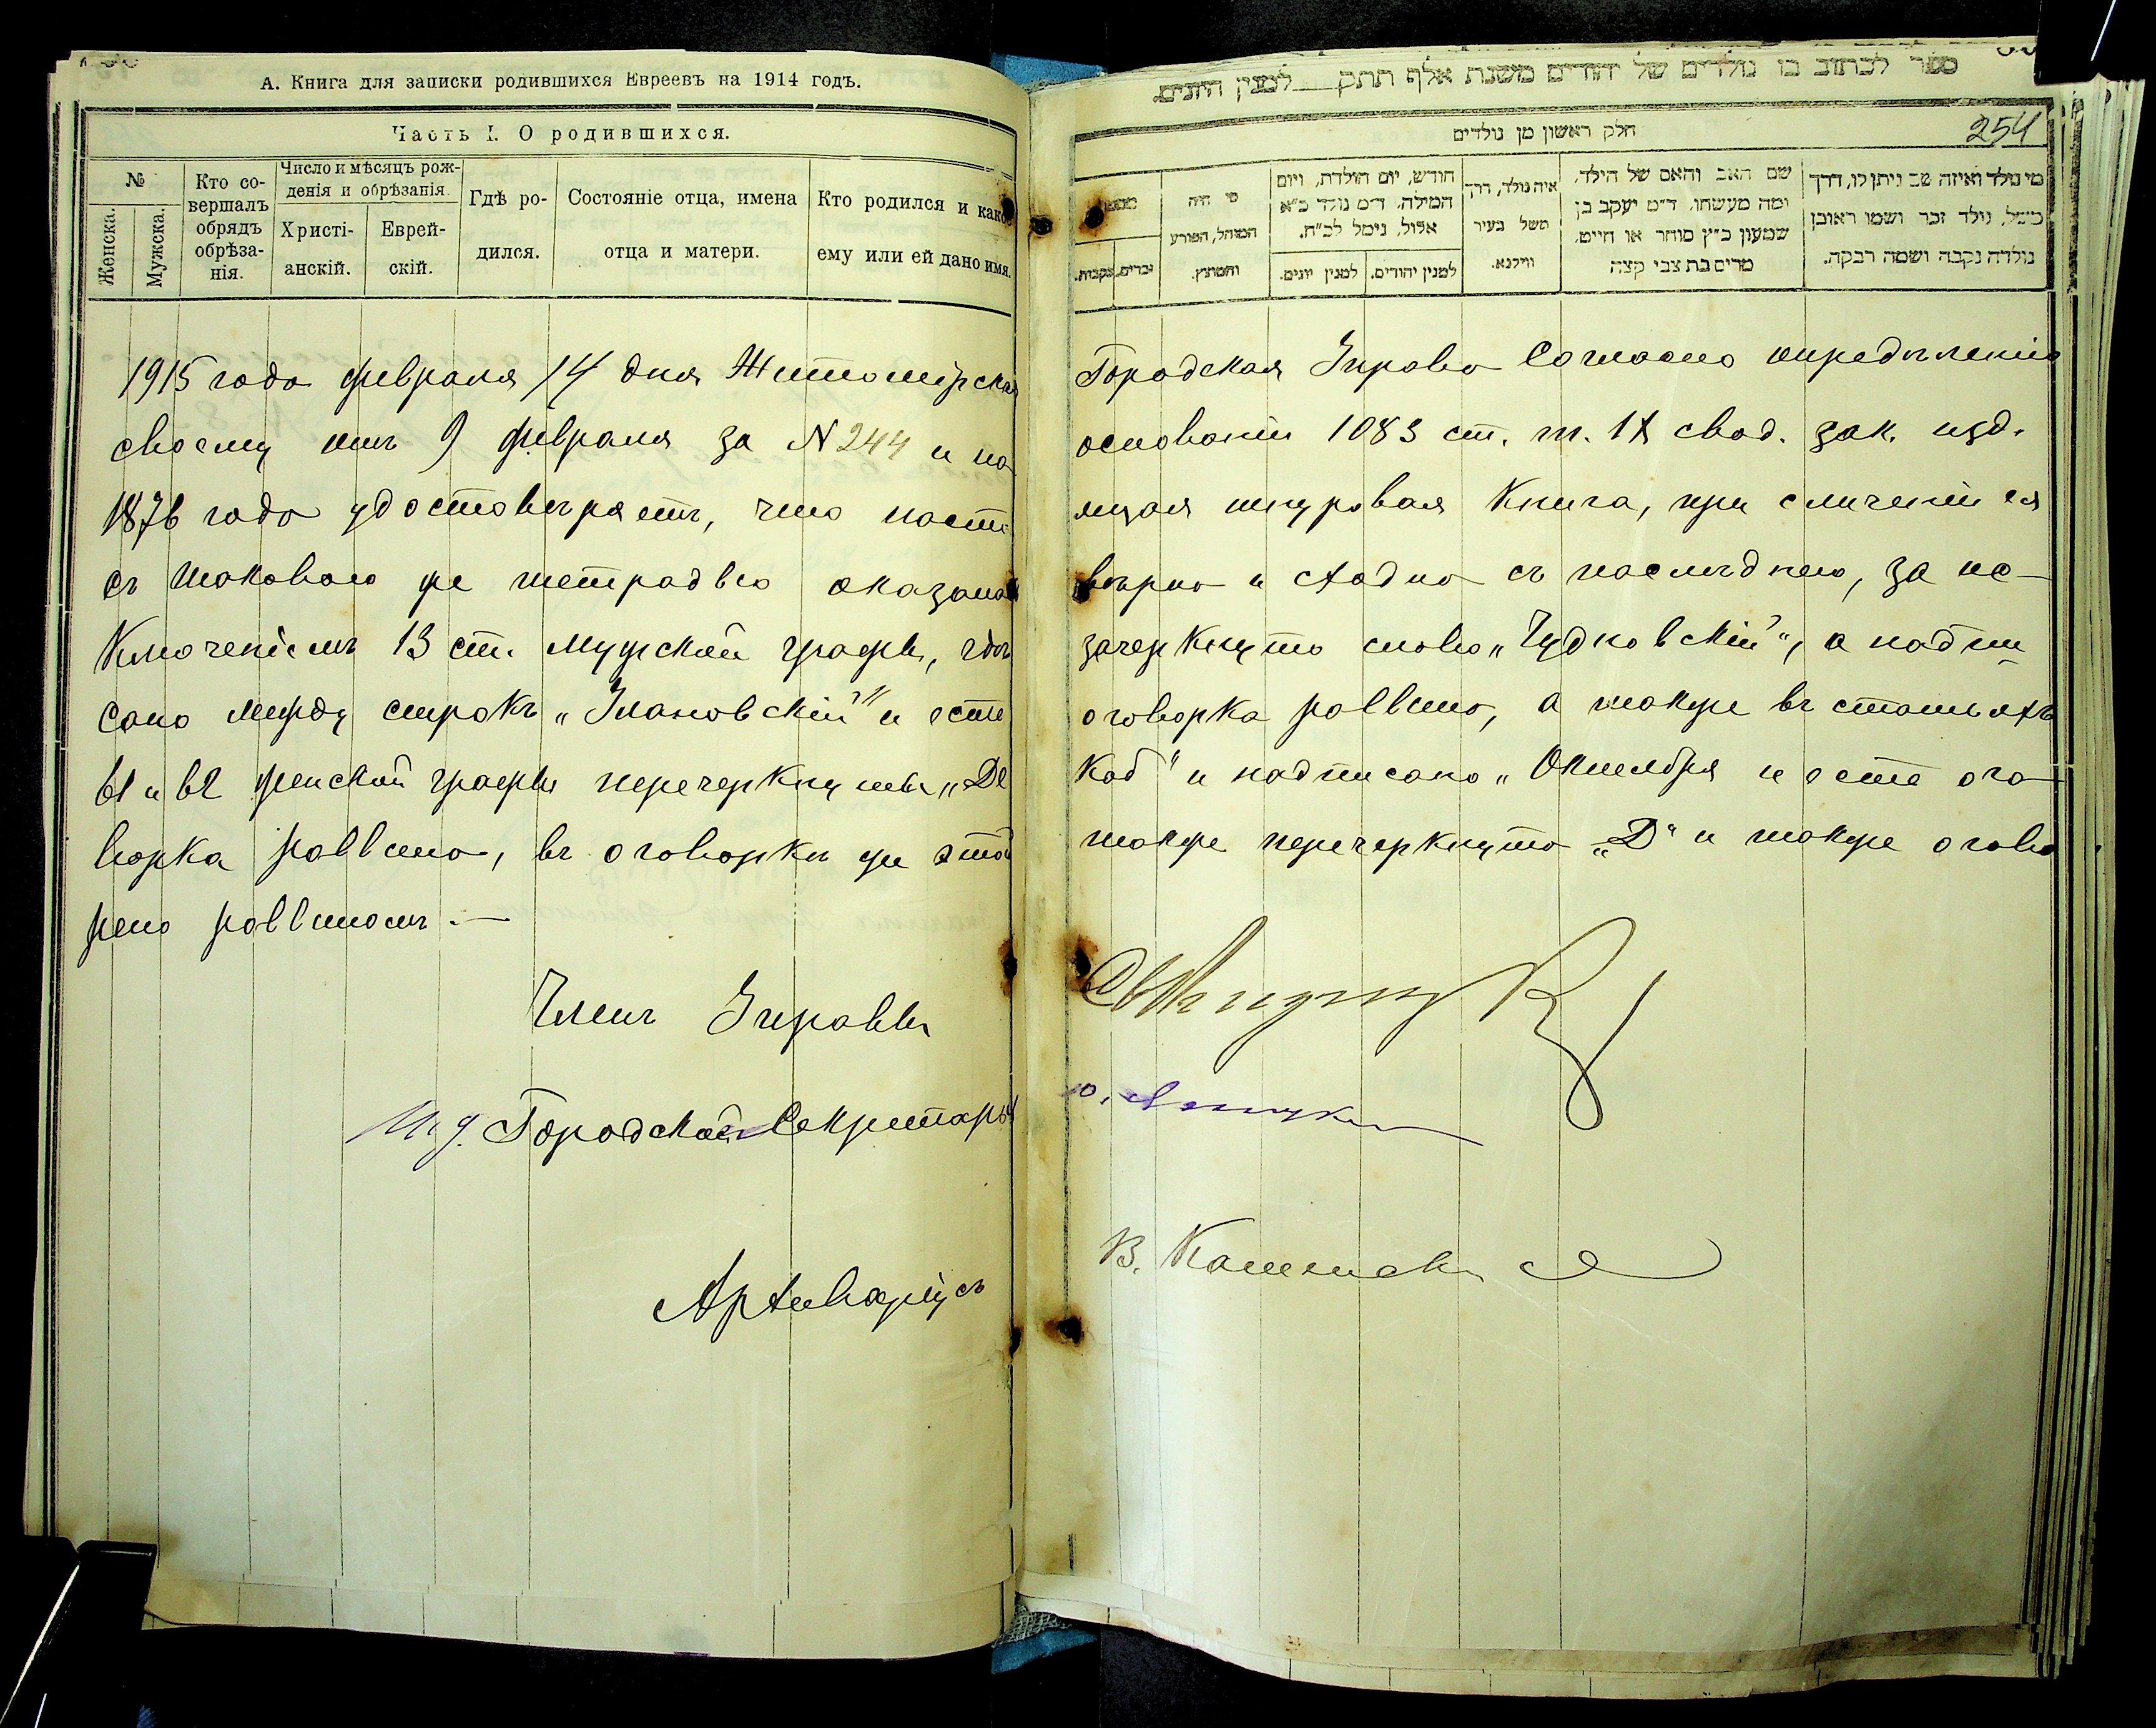 А. Книга для записки родившихся Евреевъ на 1914 годъ.
Часть I. О родившихся.
№
Женска.
Мужска.
Кто со-
вершалъ
обрядъ
обрѣза-
нія.
Число и мѣсяцъ рож-
денія и обрѣзанія.
Христі-
анскій.
Еврей-
скій.
Гдѣ ро-
дился.
Состояніе отца, имена
отца и матери.
Кто родился и какое
ему или ей дано имя.
1915 года февраля 14 дня Житомірская
своему отъ 9 февраля за N 244 и на
1876 года удостовѣряетъ, что насто
съ таковою же тетрадью оказана
ключеніемъ 13 ст. мужской графы, гдѣ
сано между строкъ „Улановскій" и есть
61 и 62 женской графы перечеркнуты „Де
ворка раввина, въ оговоркѣ же этой
рено раввиномъ.—
Членъ Управы
И. д. Городской Секретарь
Архиваріусъ
ספר לכתוב בו נולדים של יהודים משנת אלף תתק___למנין היונים.
חלק ראשון מן נולדים
254
מי נולד ואיזה שם ניתן לו, דרך
משל, נולד זכר ושמו ראובן
נולדה נקבה ושמה רבקה.
שם האב והאם של הילד,
ומה מעשהו. ד״מ יעקב בן
שמעון כ״ץ סוחר או חייט,
מרים בת צבי קצה
איה נולד, דרך
משל בעיר
ווילנא.
חודש, יום הולדת, ויום
המילה, ד״מ נולד כ״א
אלול, נימל לכ״ח.
למנין יהודים.
למנין יונים.
מי היה
המוהל, הפורע
והמוצץ.
זכרים.
נקבות.
Городская Управа согласно опредѣленію
основаніи 1083 ст. т. IX свод. зак. изд.
ящая шнуровая книга, при сличеніи ея
вѣрна и сходна съ послѣднею, за ис-
зачеркнуто слово „Чудновскій", а надпи
оговорка раввина, а также въ статьяхъ
каб" и надписано „Октября и есть ого
также перечеркнуто „Д" и также огово
В.